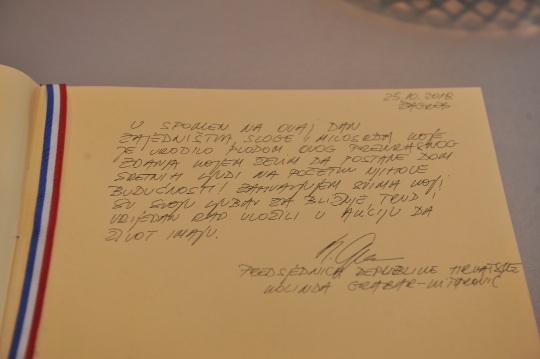 25.10.2018.
ZAGREB
U SPOMEN NA OVAJ DAN
ZAJEDNIŠTVA SLOGE I MILOSRĐA KOJE
JE URODILO PLODOM OVOG PREKRASNOG
ZDANJA KOJEM ŽELIM DA POSTANE DOM
SRETNIH LJUDI NA POČETKU NJIHOVE
BUDUĆNOSTI! ZAHVALJUJEM SVIMA KOJI
SU SVOJU LJUBAV ZA BLIŽNJE, TRUD I
VRIJEDAN RAD ULOŽILI U AKCIJU DA
ŽIVOT IMAJU.
PREDSJEDNICA REPUBLIKE HRVATSKE
KOLINDA GRABAR-KITAROVIĆ